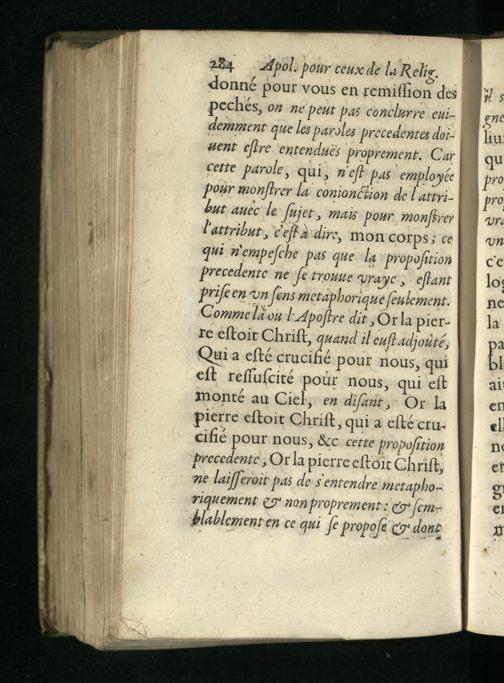 284 Apol. pour ceux de la Relig.
donné pour vous en remiſſion des
pechés, on ne peut pas conclurre eui-
demment que les paroles precedentes doi-
uent eſtre entenduës proprement. Car
cette parole, qui, n'eſt pas employée
pour monſtrer la conionction de l'attri-
but auec le ſujet, mais pour monſtrer
l'attribut, c'eſt à dire, mon corps; ce
qui n'empeſche pas que la propoſition
precedente ne ſe trouue vraye, eſtant
priſe en vn ſens metaphorique ſeulement.
Comme là ou l'Apoſtre dit, Or la pier-
re eſtoit Chriſt, quand il euſt adjouté,
Qui a eſté crucifié pour nous, qui
eſt reſſuſcité pour nous, qui eſt
monté au Ciel, en diſant, Or la
pierre eſtoit Chriſt, qui a eſté cru-
cifié pour nous, &c cette propoſition
precedente, Or la pierre eſtoit Chriſt,
ne laiſſeroit pas de s'entendre metapho-
riquement & non proprement: & ſem-
blablement en ce qui ſe propoſe & dont